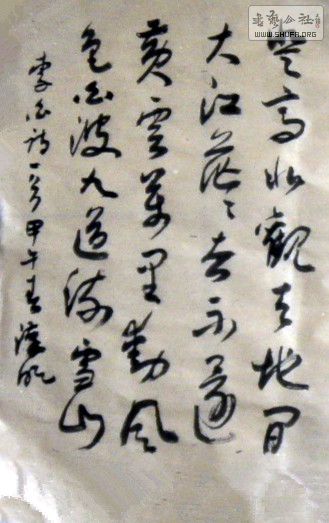 登高壮观天地间
大江茫茫去不还
黄云万里动风
色白波九道流雪山
李白诗一首甲午春
WWW.SHUFA.ORG